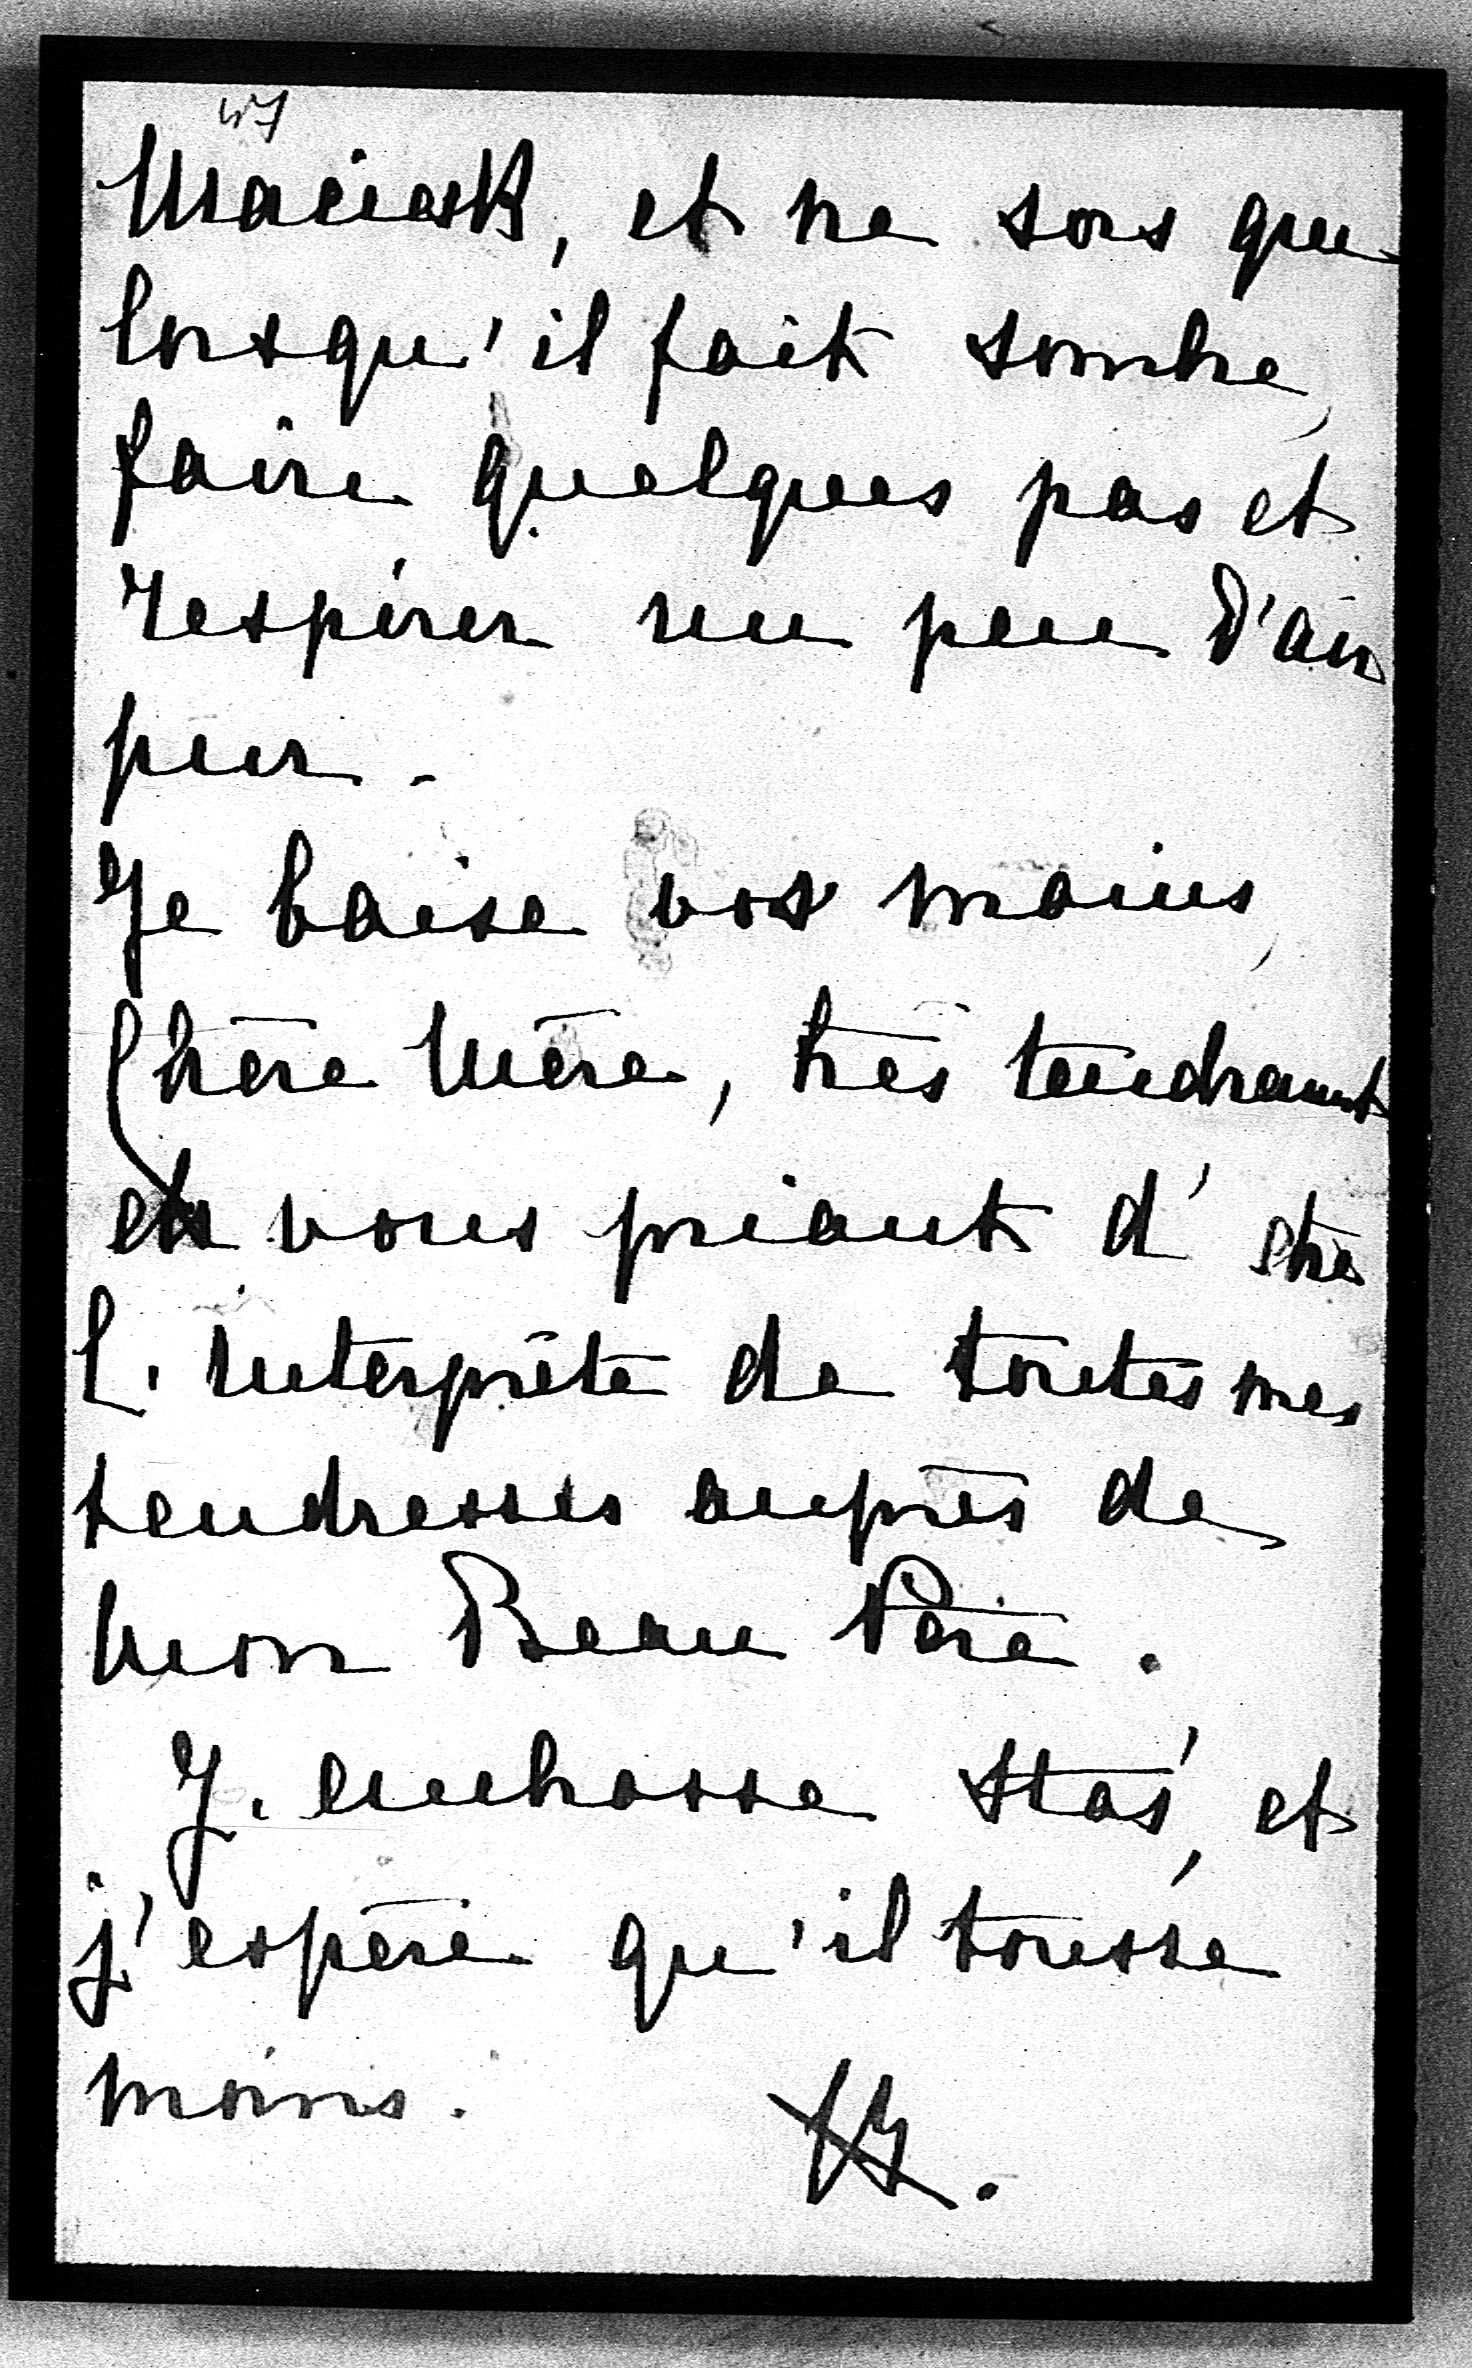 47
Maciek, et ne sors que
lorsqu'il fait sombre,
faire quelques pas et
respirer un peu d'air
pur.
Je baise vos mains,
Chère Mère, très tendremt
en vous priant d'être
l'interprète de toutes mes
tendresses auprès de
mon Beau Père.
J'embrasse Staś, et
j'espère qu'il tousse
moins.